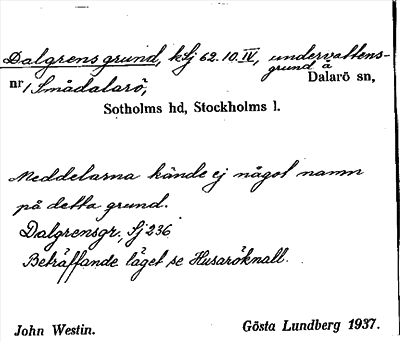 Dalgrens grund, kSj 62.10.IV, undervattens-
grund å
nr 1 Smådalarö, Dalarö sn,
Sotholms hd, Stockholms l.
Meddelarna kände ej något namn
på detta grund.
Dalgrensgr., Sj 236
Beträffande läget se Husaröknall.
John Westin. Gösta Lundberg 1937.